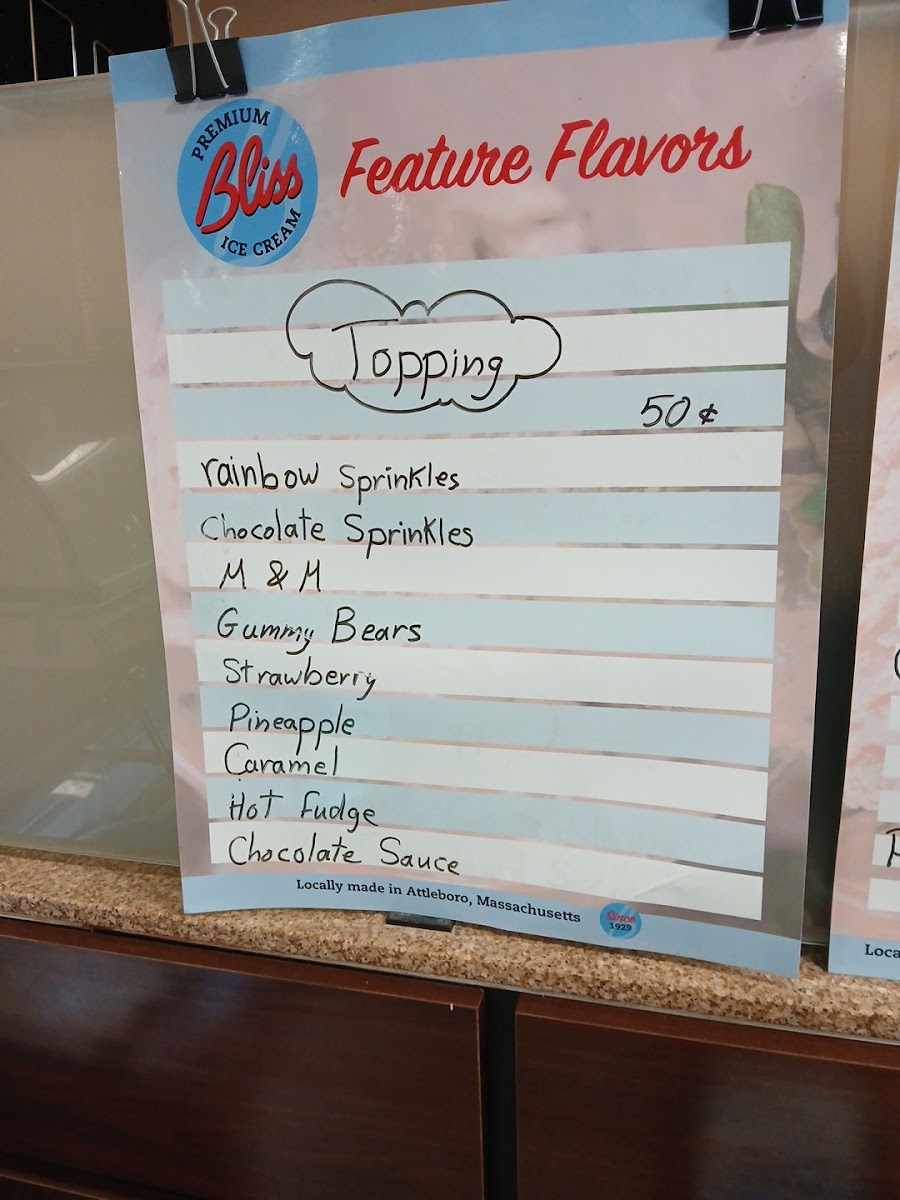 PREMIUM
Bliss
ICE CREAM
Feature Flavors
Topping
50¢
rainbow Sprinkles
Chocolate Sprinkles
M & M
Gummy Bears
Strawberry
Pineapple
Caramel
Hot Fudge
Chocolate Sauce
Locally made in Attleboro, Massachusetts
Since
1929
Loca